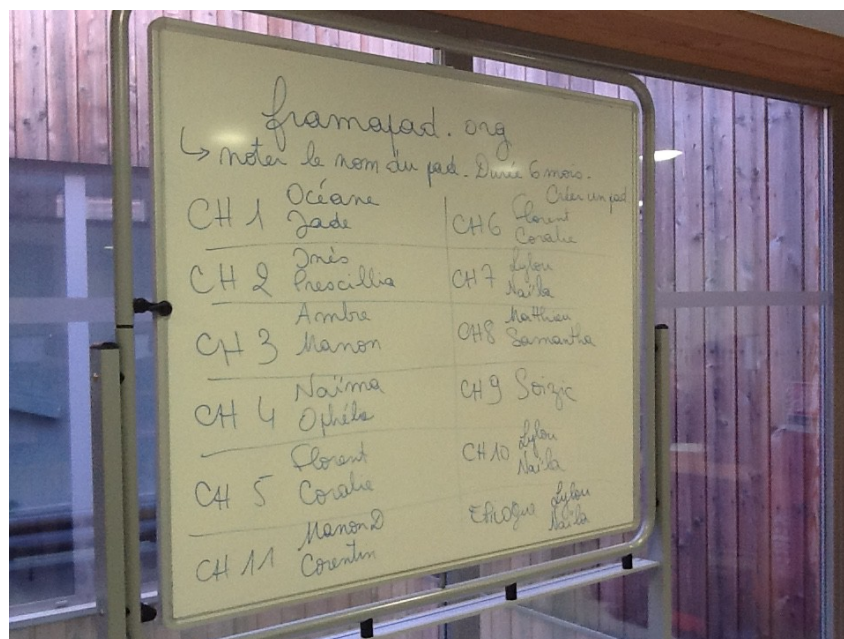 framapad.org
↳ noter le nom du pad. Durée 6 mois.
Créer un pad
CH 1 Océane
Jade
CH 2 Inès
Prescillia
CH 3 Ambre
Manon
CH 4 Naïma
Ophéle
CH 5 Florent
Coralie
CH 11 Manon D
Corentin
CH 6 Florent
Coralie
CH 7 Lylou
Naïla
CH 8 Matthieu
Samantha
CH 9 Soizic
CH 10 Lylou
Naïla
Lylou
Naïla